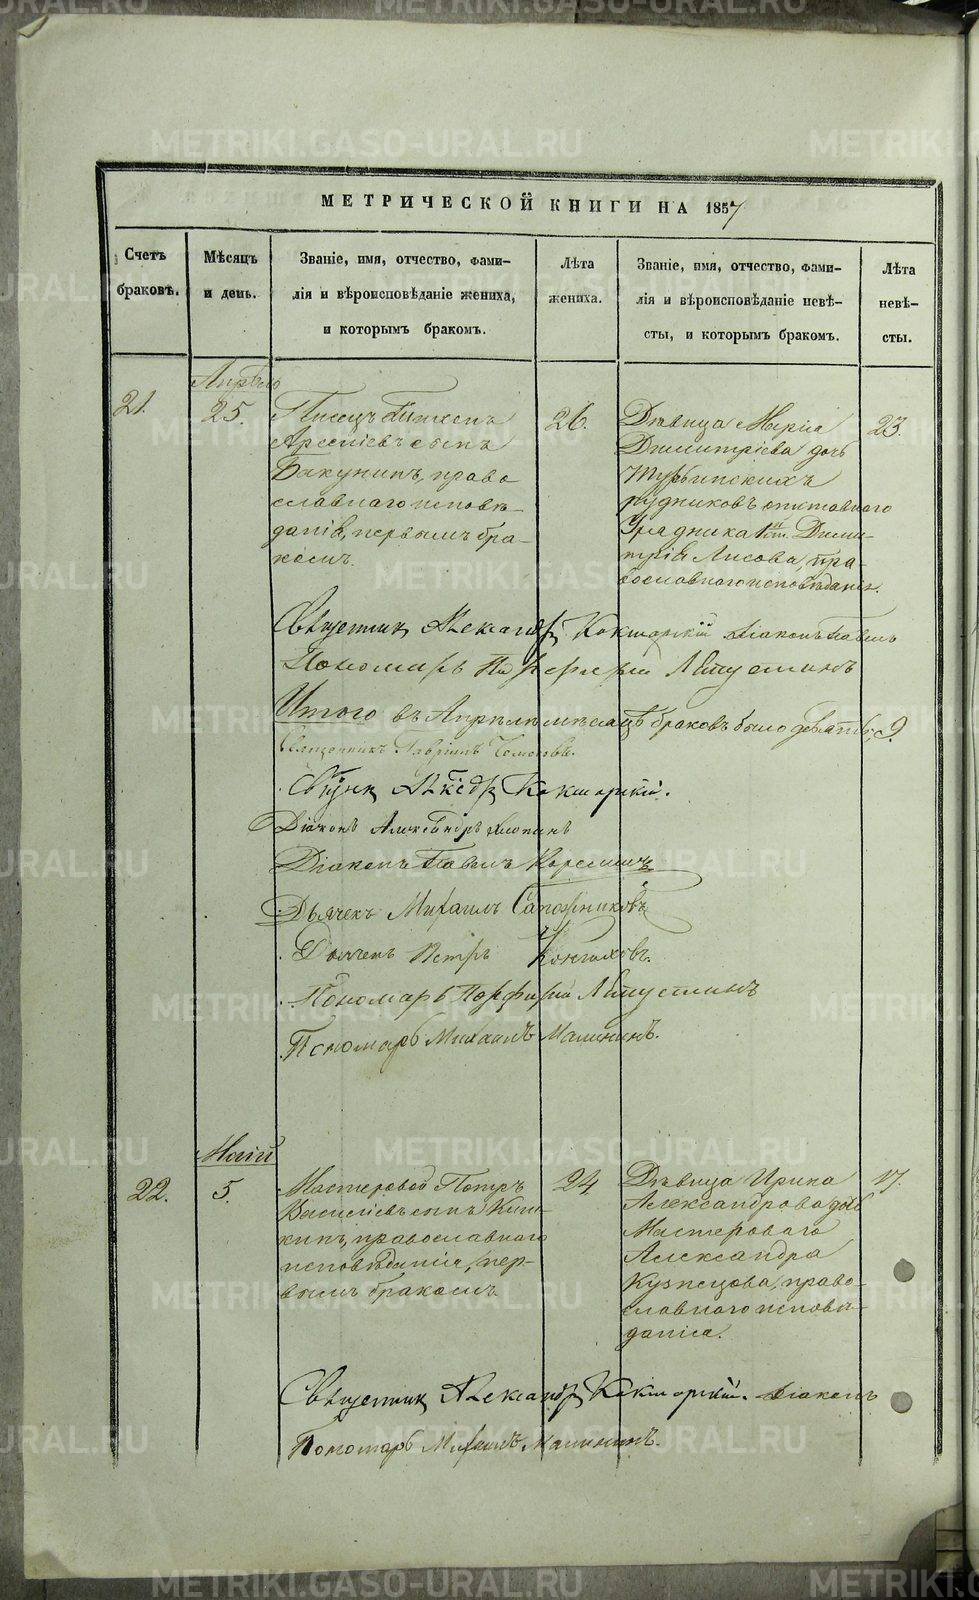 METRIKI.GASO-URAL.RU
МЕТРИЧЕСКОЙ КНИГИ НА 1857
Счетъ браковъ.
Мѣсяцъ и день.
Званіе, имя, отчество, фами-
лія и вѣроисповѣданіе жениха,
и которымъ бракомъ.
Лѣта
жениха.
Званіе, имя, отчество, фами-
лія и вѣроисповѣданіе невѣ-
сты, и которымъ бракомъ.
Лѣта
невѣ-
сты.
21.
Апрѣль
25.
Писецъ
Арсеніевъ сынъ
Бакунинъ, право
славнаго исповѣ-
данія, первымъ бра-
комъ.
26.
Дѣвица Марія
Димитріева дочь
Турьинскихъ
рудниковъ отставнаго
Урядника 1й ст. Дими-
трія Лисова, пра-
вославнаго исповѣданія.
23.
Священникъ Александръ Кокшарскій Діаконъ Павелъ
Пономарь Порфирій Автустинъ
Итого въ Апрѣлѣ мѣсяцѣ браковъ было девять. 9.
Священникъ Гавріилъ
Свщнкъ Алксдръ Кокшарскій.
Діаконъ Александръ
Діаконъ Павелъ
Дьячекъ Михаилъ Сапожниковъ
Дьячекъ Петръ
Пономарь Порфирій
Пономарь Михаилъ Малининъ.
22.
Май
5.
Мастеровой Петръ
Василіевъ сынъ
кинъ, православнаго
исповѣданія, пер-
вымъ бракомъ
24
Дѣвица Ирина
Александрова дочь
Мастероваго
Александра
Кузнецова, право-
славнаго исповѣ-
данія.
17.
Священникъ Александръ Кокшарскій. Діаконъ
Пономарь Михаилъ Малининъ.